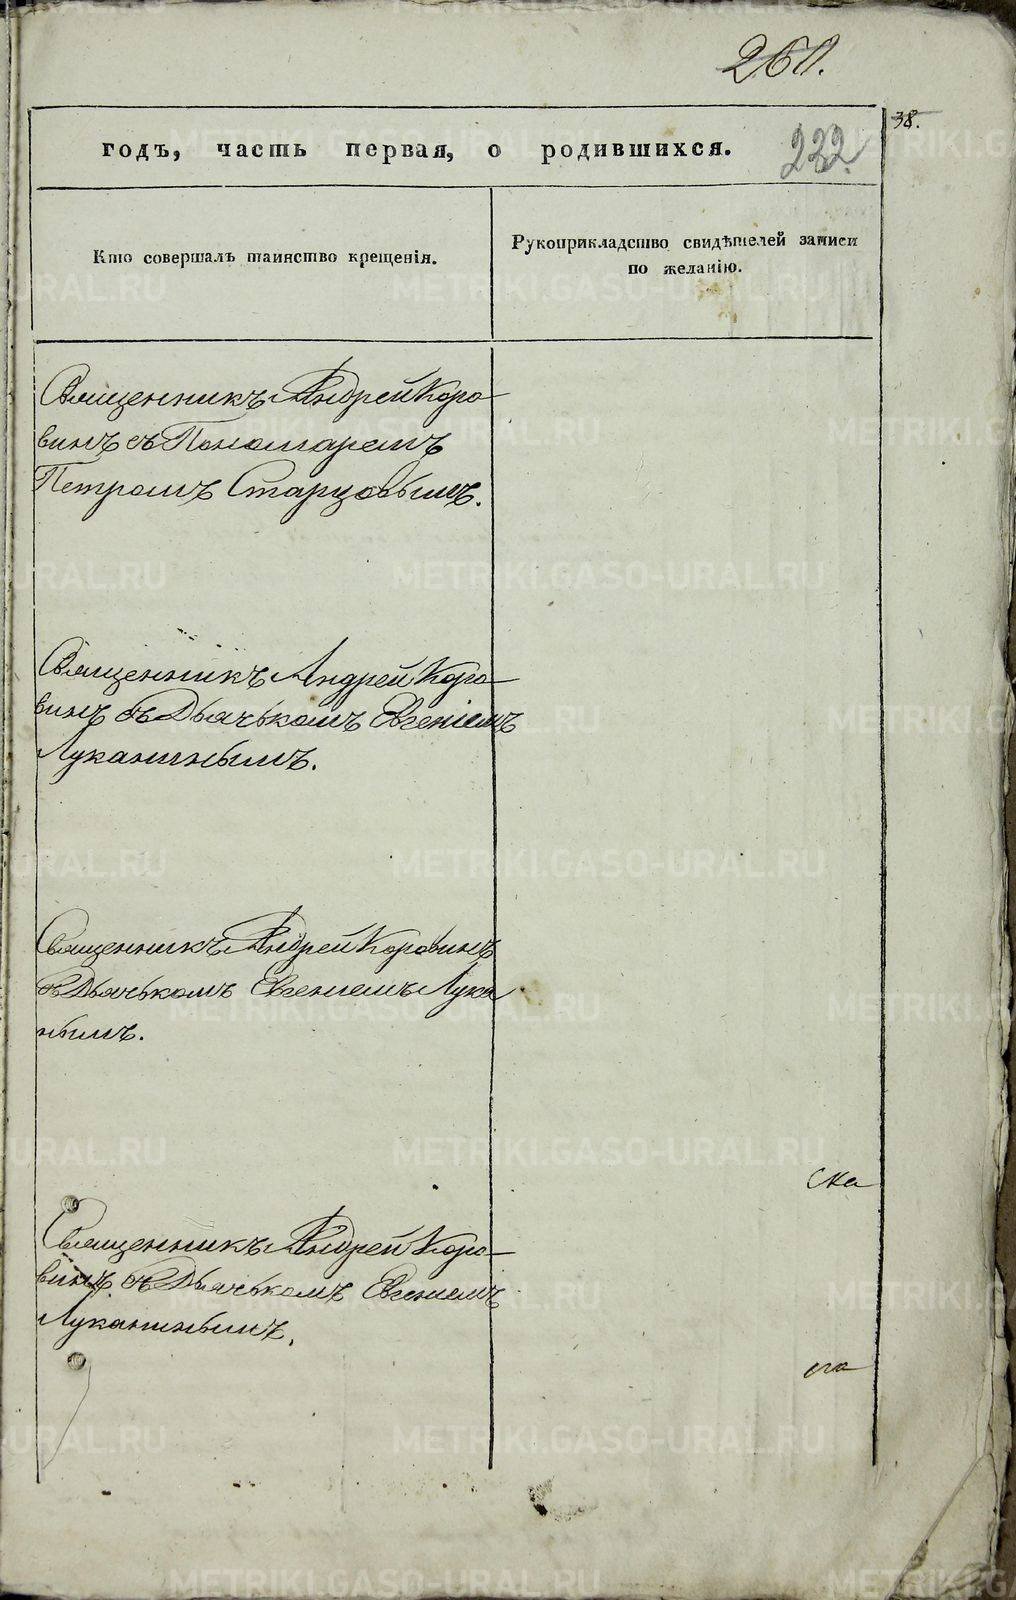 260.
38.
годъ, часть первая, о родившихся.
222.
Кто совершалъ таинство крещенія.
Рукоприкладство свидѣтелей записи
по желанію.
Священникъ Андрей Коро
винъ съ Пономаремъ
Петромъ Старцовымъ.
Священникъ Андрей Коро
винъ съ Дьячькомъ Евгеніемъ
Луканинымъ.
Священникъ Андрей Коровинъ
съ Дьячькомъ Евгениемъ Лука
нымъ.
ска
Священникъ Андрей Коро
винъ съ Дьячькомъ Евгениемъ
Луканинымъ.
METRIKI.GASO-URAL.RU